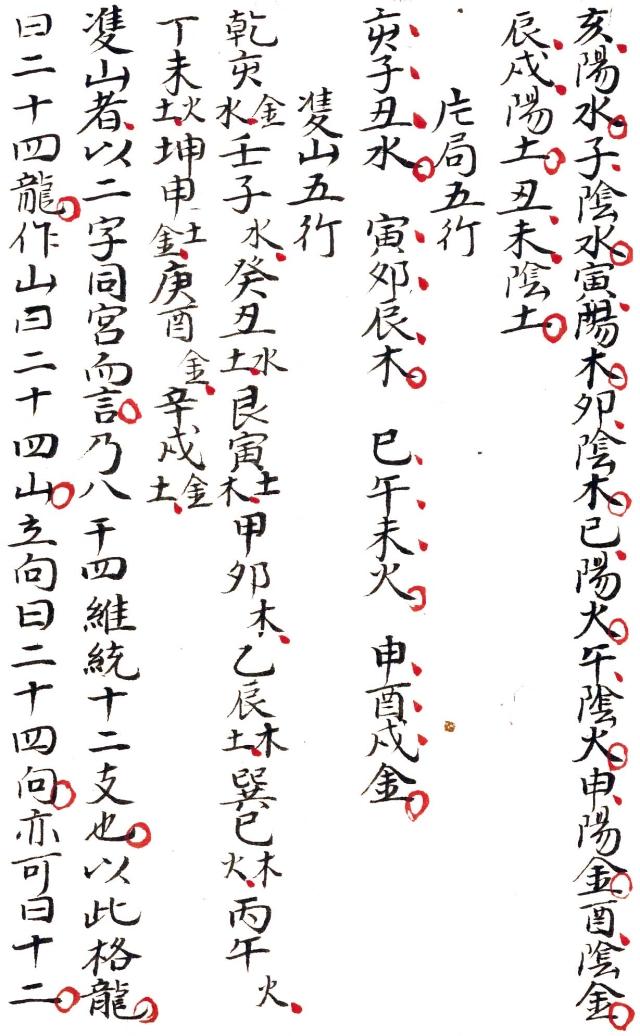 亥陽水子陰水寅陽木卯陰木巳陽火午陰火申陽金酉陰金
辰戌陽土丑未陰土
局五行
亥子丑水 寅卯辰木 巳午未火 申酉戌金
雙山五行
乾亥金水壬子水癸丑水土艮寅土木甲卯木乙辰木土巽巳木火丙午火
丁未火土坤申土金庚酉金辛戌金土
雙山者以二字同宮而言乃八干四維統十二支也以此格龍
曰二十四龍作山曰二十四山立向曰二十四向亦可曰十二